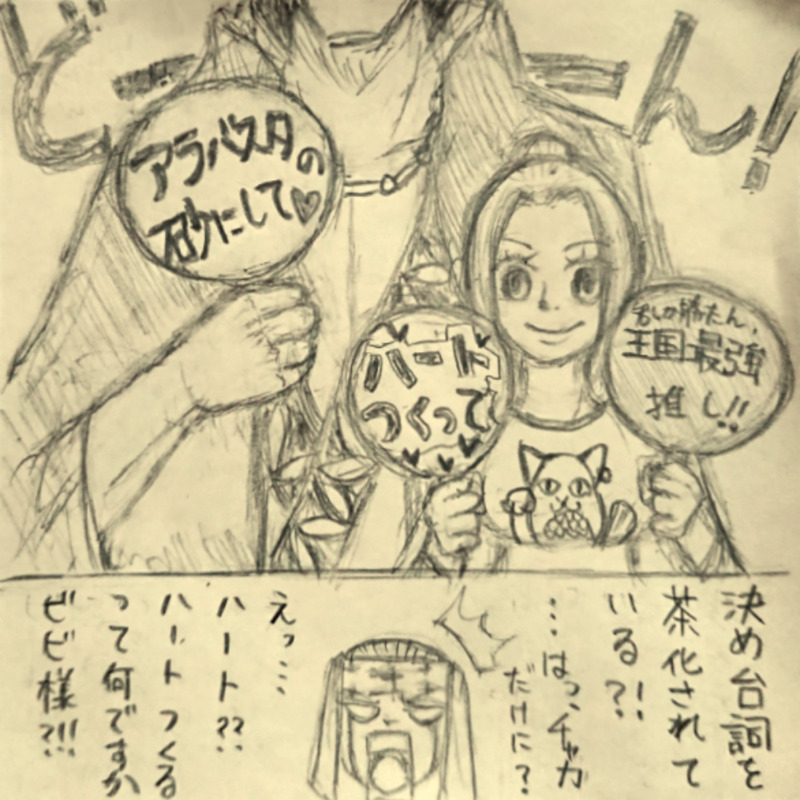 どーーん!
アラバスタの
砂にして♡
ハート
つくって
君しか勝たん、
王国最強
推し!!
決め台詞を
茶化されて
いる?!
…はっ、チャカ
だけに?
えっ…
ハート??
ハートつくる
って何ですか
ビビ様?!!